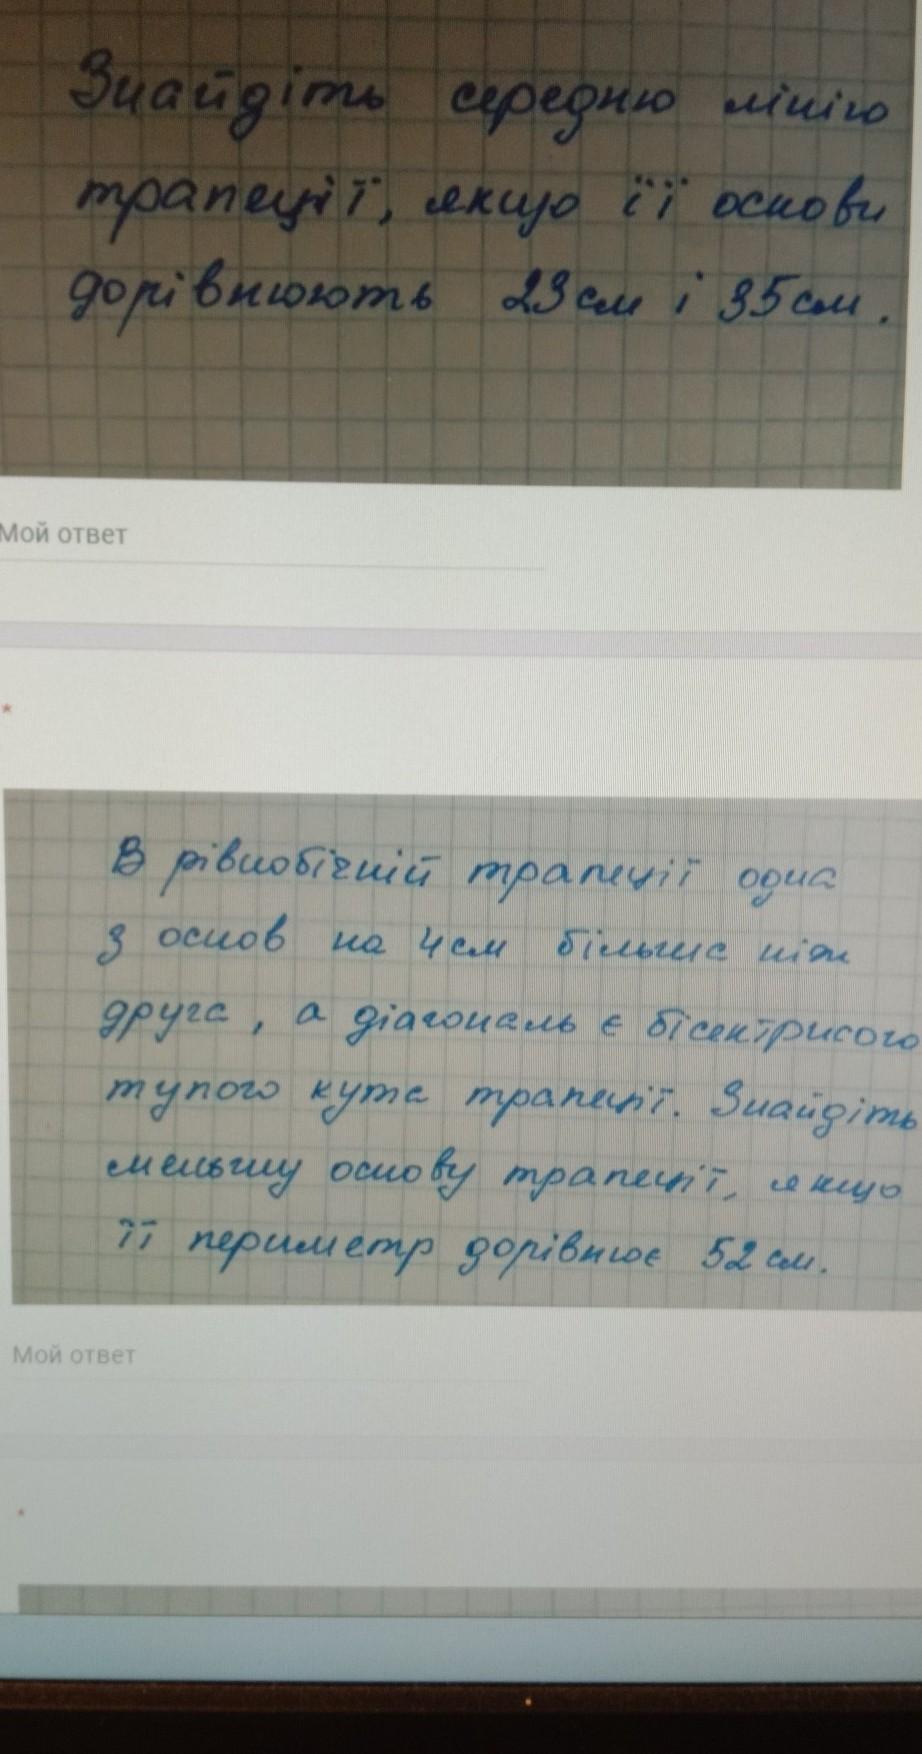 Знайдіть середню лінію
трапеції, якщо її основи
дорівнюють 23см і 35см.
Мой ответ
*
В рівнобічній трапеції одна
з основ на 4см більша ніж
друга, а діагональ є бісектрисою
тупого кута трапеції. Знайдіть
меньшу основу трапеції, якщо
її периметр дорівнює 52см.
Мой ответ
*